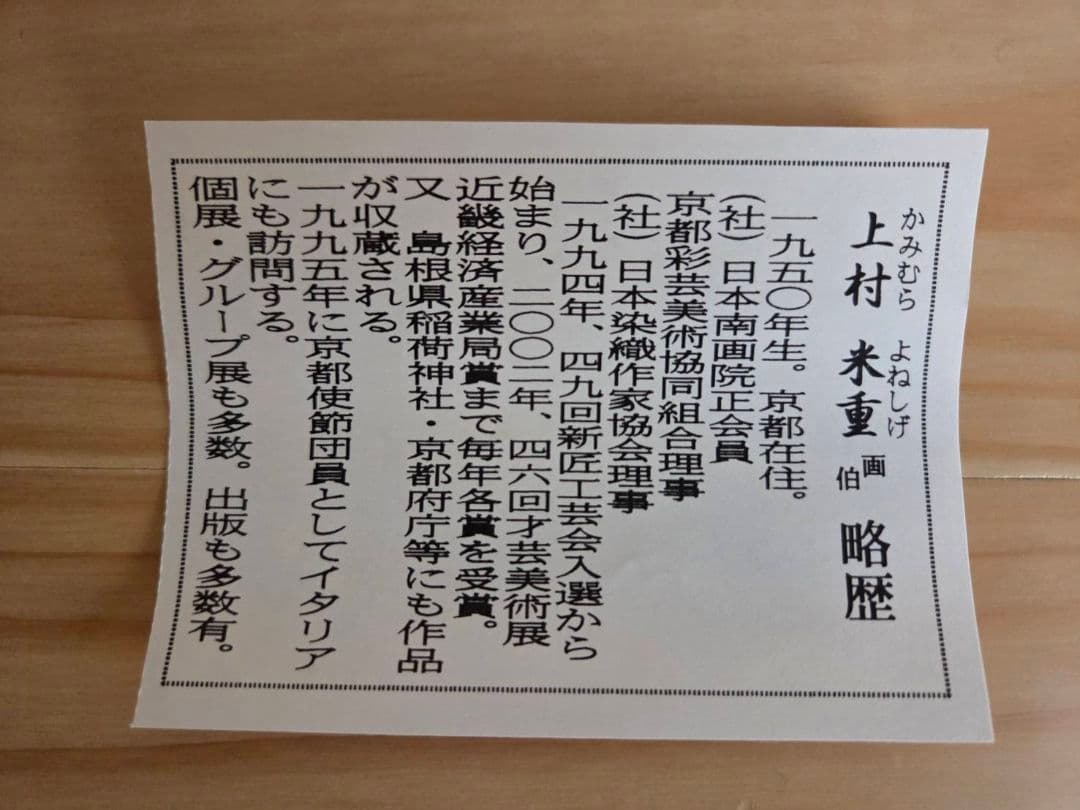 かみむら よねしげ
上村 米重 画伯 略歴
一九五〇年生。京都在住。
(社)日本南画院正会員
京都彩芸美術協同組合理事
(社)日本染織作家協会理事
一九九四年、四九回新匠工芸会入選から
始まり、二〇〇二年、四六回才芸美術展
近畿経済産業局賞まで毎年各賞を受賞。
又 島根県稲荷神社・京都府庁等にも作品
が収蔵される。
一九九五年に京都使節団員としてイタリア
にも訪問する。
個展・グループ展も多数。出版も多数有。